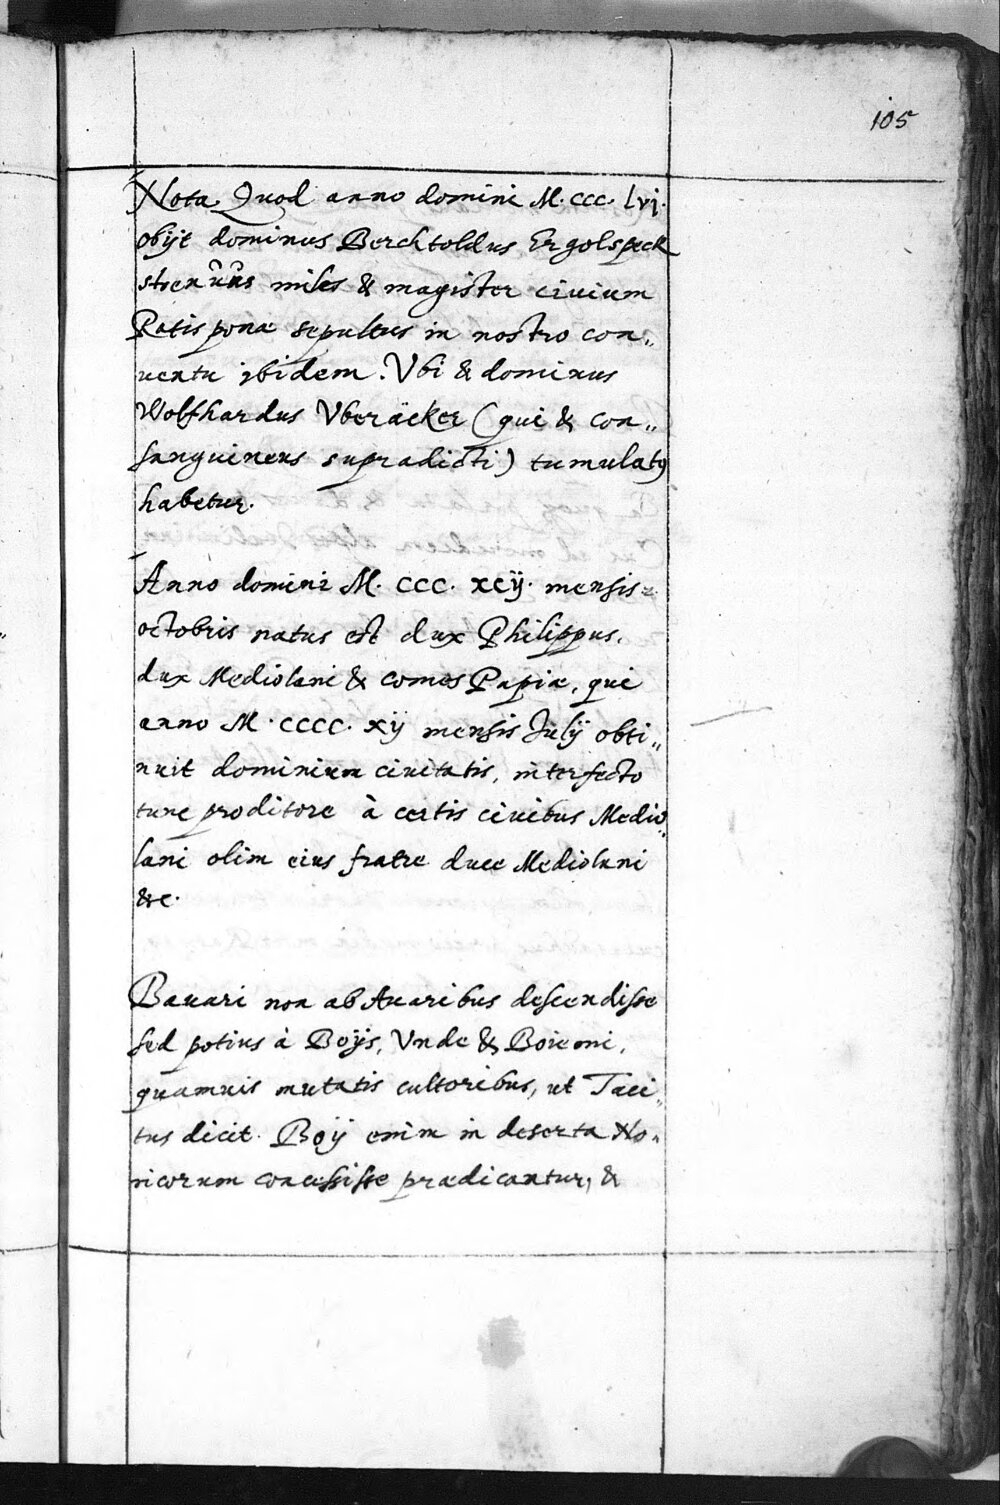 105
Nota Quod anno domini M. CCC. Lvj.
obijt dominus Berchtoldus Ergolspeck
strenuus miles & magister ciuium
Ratisponæ sepultus in nostro con„
uentu ibidem. Vbi & dominus
Wolfhardus Vberäcker (qui & con„
sanguineus supradicti) tumulatus
habetur.
Anno domini M. CCC. xcij. mensis
octobris natus est dux Philippus,
dux Mediolani & comes Papiæ, qui
anno M. CCCC. xij mensis Julij obti„
nuit dominium ciuitatis, interfecto
tunc proditore à certis ciuibus Medio„
lani olim eius fratre duce Mediolani
&c.
Bauari non ab Auaribus descendisse
sed potius à Boijs, Vnde & Boiemi,
quamuis mutatis cultoribus, ut Taci„
tus dicit. Boij enim in deserta No„
ricorum concessisse prædicantur, &